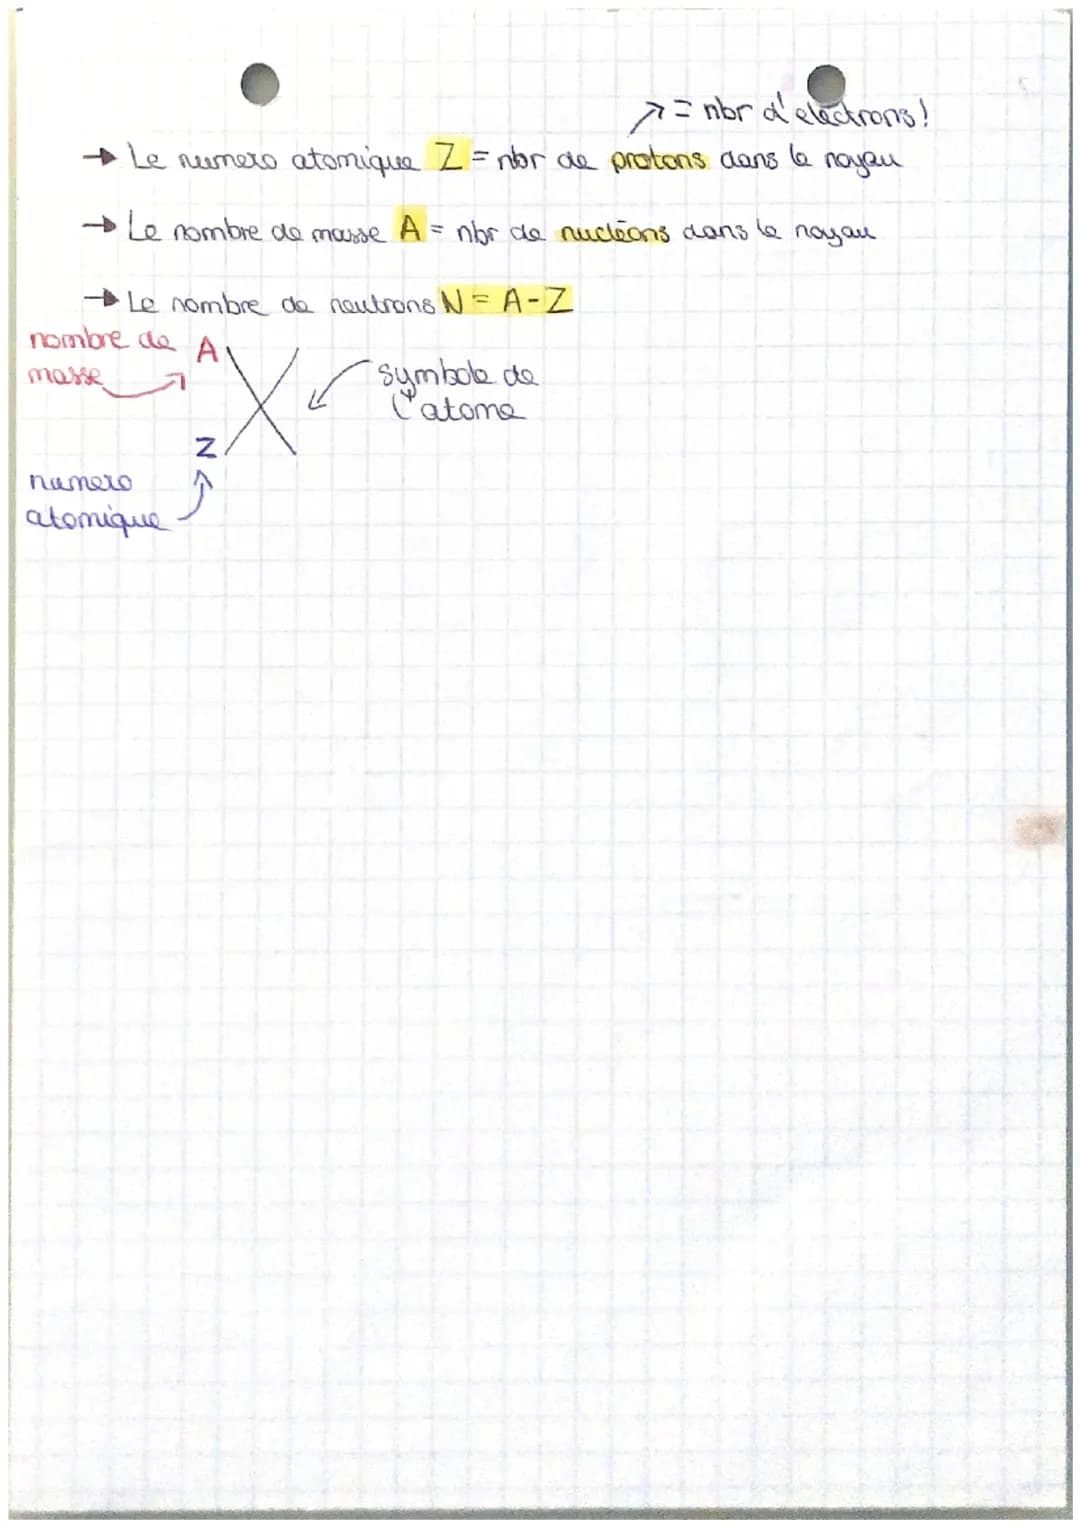 = nbr d'eléctrons!
→ Le numero atomique Z = nbr de protons dans le noyau
→ Le nombre de masse A = nbr de nucléons dans le noyau
→ Le nombre de neutrons N = A - Z
nombre de
masse
A
X
symbole de
l'atome
Z
numero
atomique